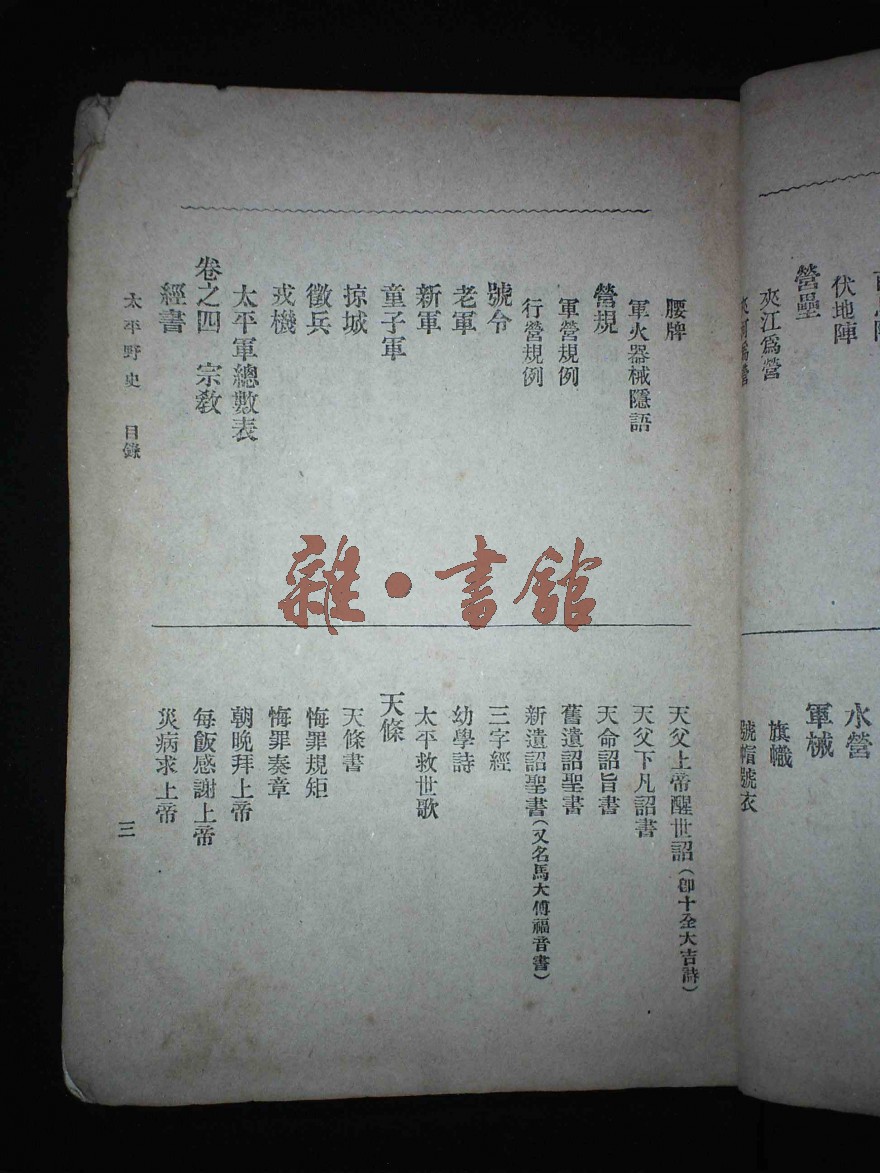 伏地陣
營壘
夾江爲營
水營
軍械
旗幟
號帽號衣
腰牌
軍火器械隱語
營規
軍營規例
行營規例
號令
老軍
新軍
童子軍
掠城
徵兵
戎機
太平軍總數表
卷之四 宗教
經書
天父上帝醒世詔(卽十全大吉詩)
天父下凡詔書
天命詔旨書
舊遺詔聖書
新遺詔聖書(又名馬太傅福音書)
三字經
幼學詩
太平救世歌
天條
天條書
悔罪規矩
悔罪奏章
朝晚拜上帝
每飯感謝上帝
災病求上帝
太平野史 目錄
三
雜·書館